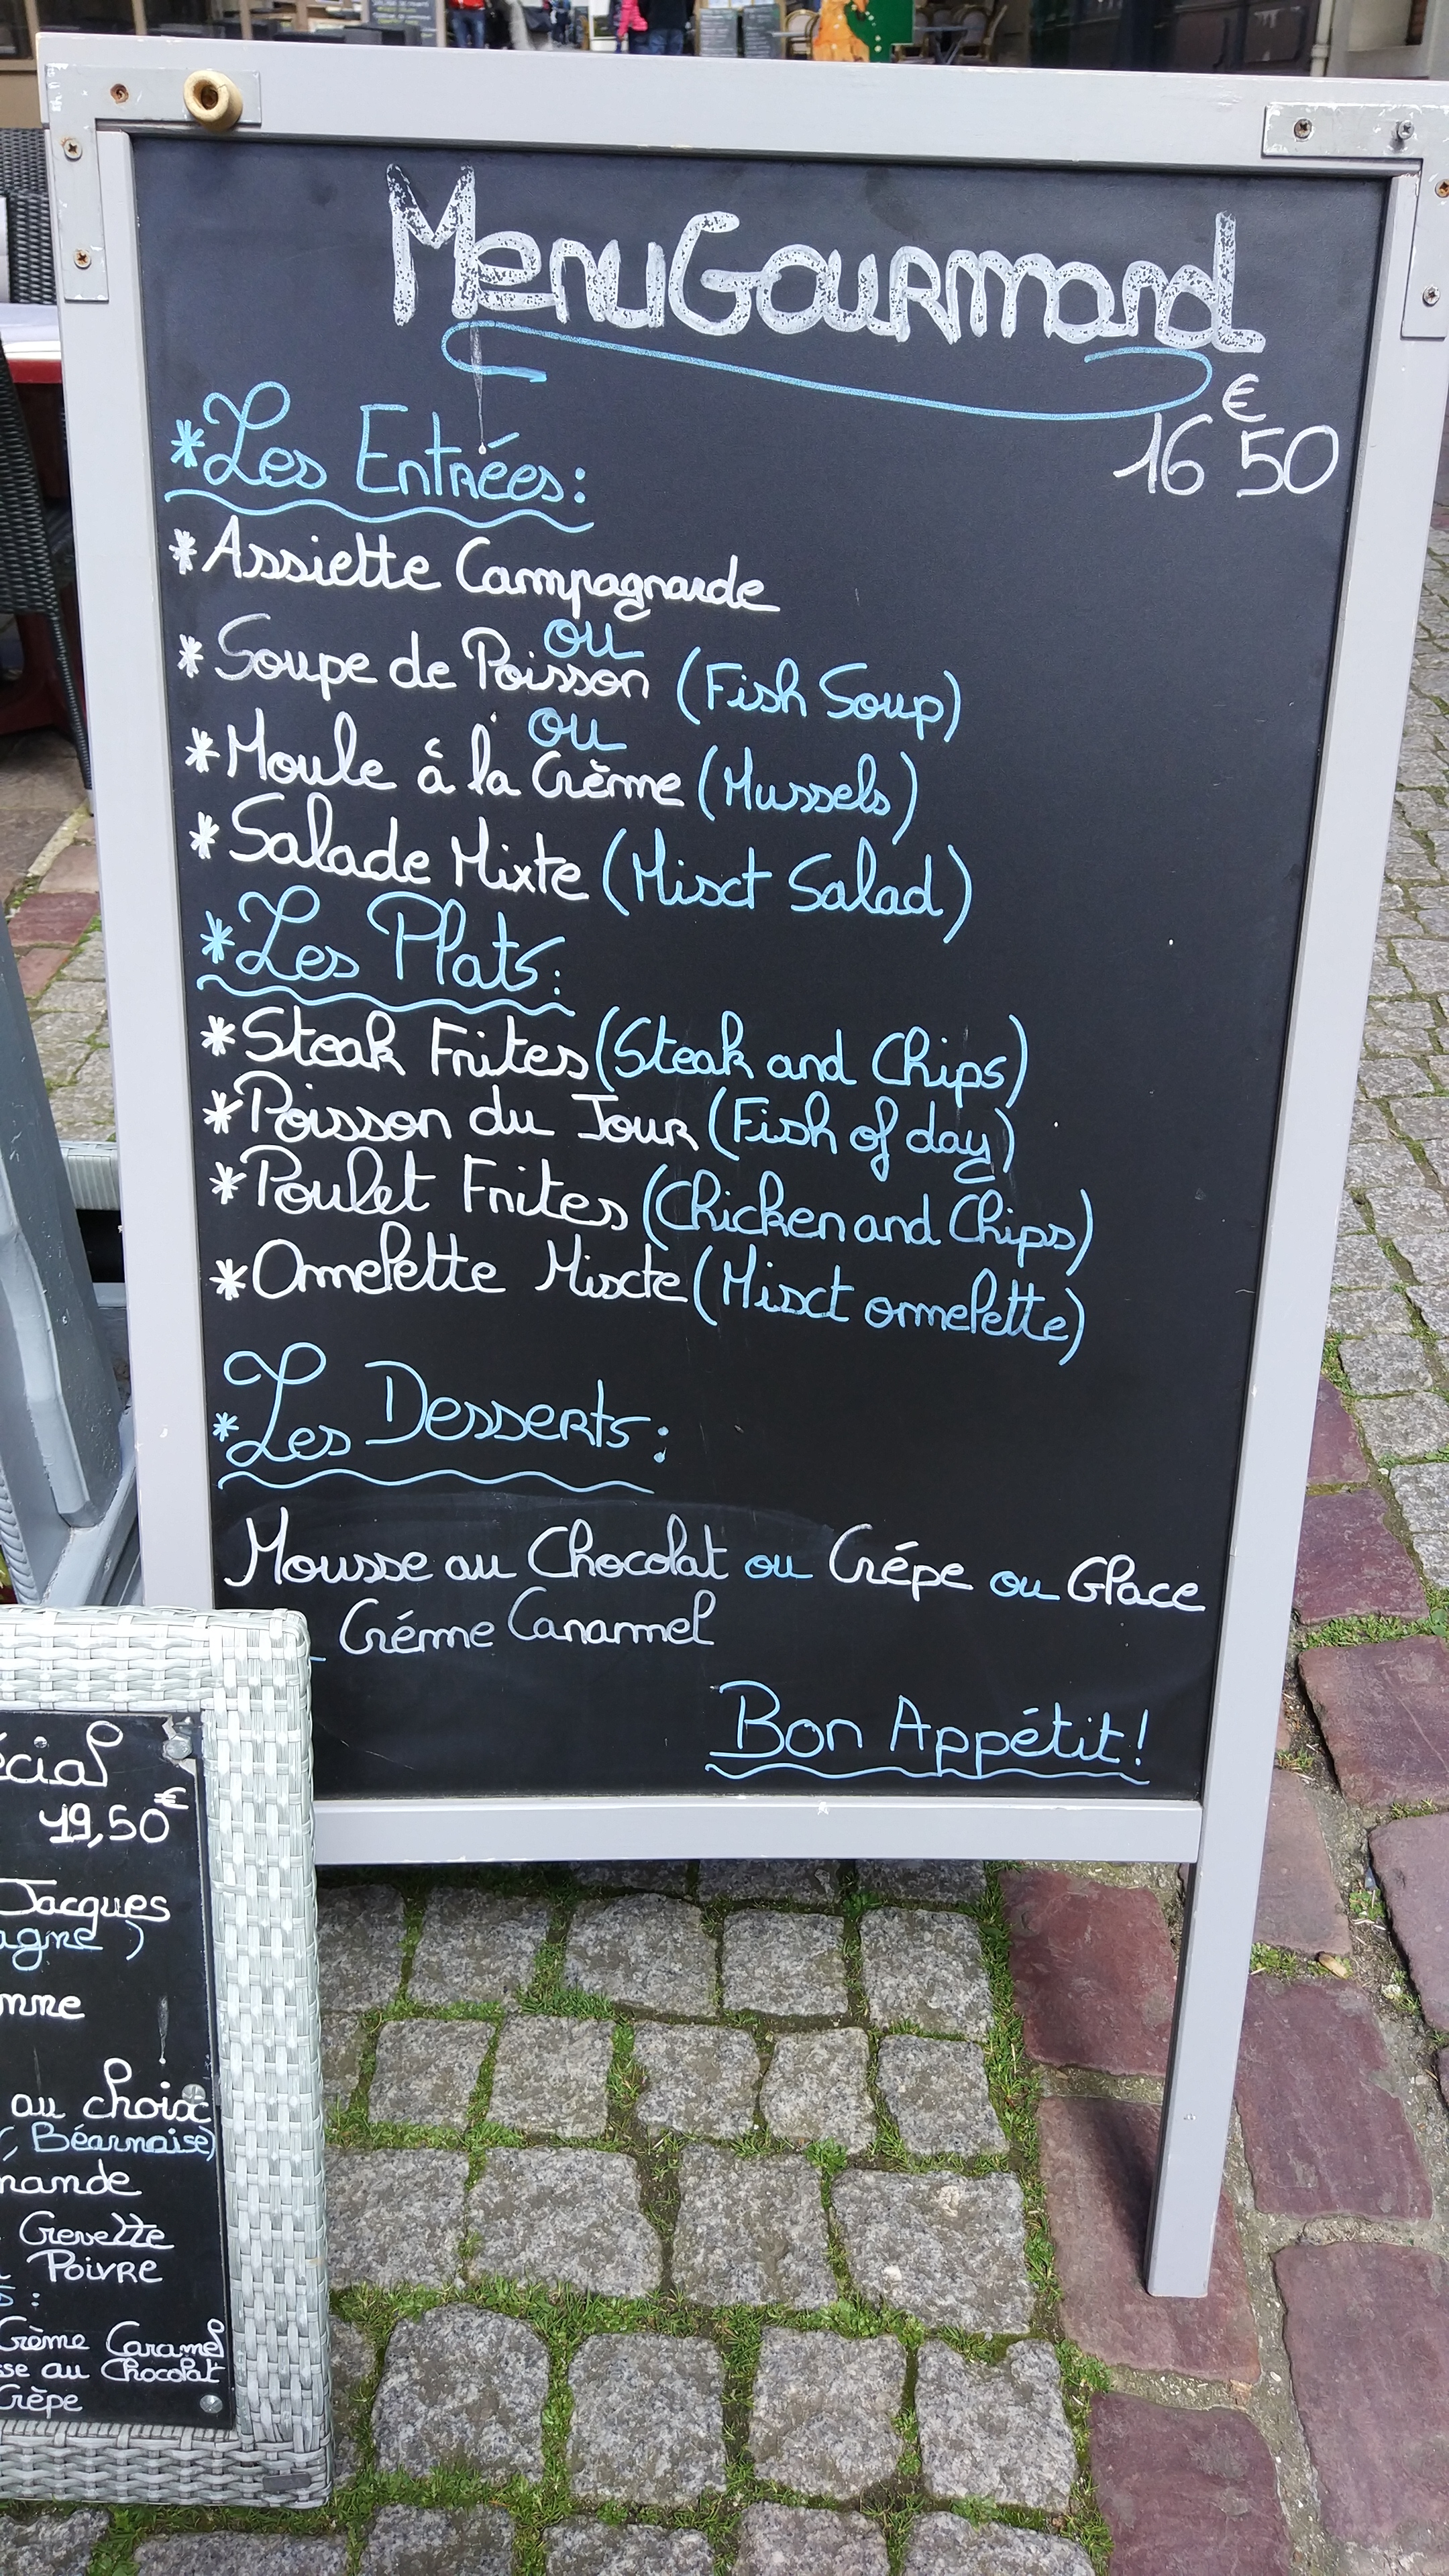 Menu Gourmand
16€50
*Les Entrées:
*Assiette Campagnarde
ou
*Soupe de Poisson (Fish Soup)
ou
*Moule à la Crème (Mussels)
*Salade Mixte (Mixt Salad)
*Les Plats:
*Steak Frites (Steak and Chips)
*Poisson du Jour (Fish of day)
*Poulet Frites (Chicken and Chips)
*Omelette Mixte (Mixt omelette)
*Les Desserts:
Mousse au Chocolat ou Crêpe ou Glace
_ Crème Caramel
Bon Appétit!
écial
19,50€
Jacques
agne)
nne
au choix
(, Béarnaise)
mande
Crevette
Poivre
Crème Caramel
sse au Chocolat
Crêpe